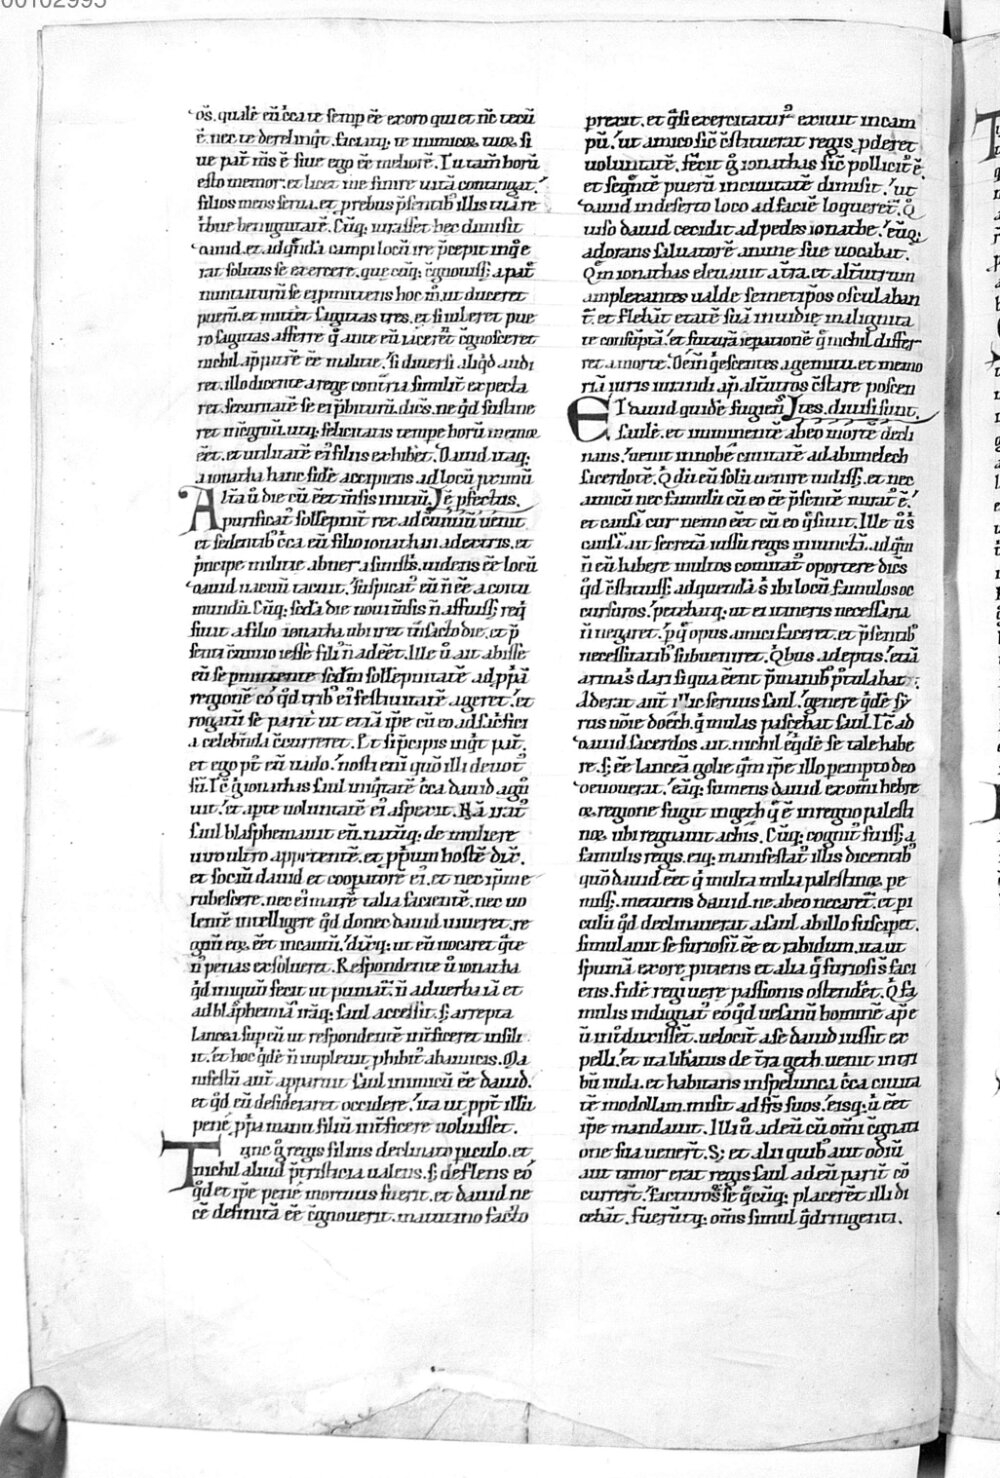 00102995
os. qualē eū cc̄a te semp ēē exoro qui et nc̄ tecū
ē. nec te derelinqt̄. faciatq; te inimicos tuos si
ue pat̄ m̄s ē siue ego ēē meliorē. Tu tam̄ horū
esto memor. et licet me finire uitā contingat.
filios meos serua. et prebus p̄sentib; illis tuā re
tribue benignitatē. Cūq; iurasset hec dimisit
dauid. et ad qndā campi locū ire p̄cepit in q̄ e
rat solitus se exercere. que cūq; c̄gnouiss; a pat̄
nuntiaturū se ei p̄mittens hoc m̄. ut duceret
puerū. et mittēs sagittas tres. et si iuberet pue
ro sagittas afferre q̄ ante eū iacer̄t c̄gnosceret
nichil app̄ere ēē malitie. si diuersi aliqd audi
ret. illo dicente a rege contria similit̄ expecta
ret. securitatē se ei p̄biturū. dic̄s. ne qd sustine
ret
ēet. et utilitatē ei filiis exhiber̄. Dauid itaq;
a ionatha hanc fidē accipiens. ad locū p̄ximū
Altā ū die cū ēet m̄sis initiū. Iē pfectus.
purificat sollepnit̄ rex ad c̄uiuiū uenit
et sedentib; cc̄a eū filio ionathan a dextris. et
p̄ncipe militie abner a sinist̄s. uidens ēē locū
dauid uacuū tacuit. suspicat̄ eū n̄ ēē a coitu
mundū. Cūq; scd̄a die noui m̄sis n̄ affuiss; req̄
siuit a filio ionatha ubi iret in facto die. et p̄
senti c̄uiuio iesse fili; n̄ adeēt. Ille ū ait abisse
eū se p̄mittente sed̄m sollepnitatē ad pp̄iā
regionē eo qd trib; ei; festiuitatē ageret. et
rogatū se parit̄ ut etiā ip̄e cū eo. ad sac̄fici
a celebrn̄da c̄curreret. Et si p̄cipis inqt̄ pat̄.
et ego pt̄ eū uado. nosti eni quō illi deuot̄
sū. Tc̄ g̊ ionathas saul migratē cc̄a dauid agn̄
uit. et apte uoluntatē ei; aspexit. Nā irat̄
saul blasphemauit eū. natūq; de muliere
uiro ultro appetente. et pp̄ium hostē dix̄.
et sociū dauid et coopatorē ei;. et nec ip̄um e
rubescere. nec ei; matrē talia faciente. nec uo
lentē intelligere qd donec dauid uiueret. re
gnū eos ēet incautū. dūcq; ut eū uocaret q̄te
n̄; penas exsolueret. Respondente ū ionatha
qd iniquū fecit ut puniat̄. n̄ ad uerba iā et
ad blasphemiā iraq; saul accessit. s; arrepta
lancea sup eū ut respondentē int̄ficeret insili
it. et hoc qdē n̄ impleuit phibit; ab amicis. Ma
nifestū aut̄ apparuit saul inimicū ēē dauid.
et qd eū desideraret occidere. ita ut ppt̄ illū
penē pp̄ia manu filiū int̄ficere uoluisset.
Tunc g̊ regis filius declinato piculo. et
nichil aliud p̄ tristicia ualens. s; deflens eo
qd et ip̄e penē mortuus fuerit. et dauid ne
cē definitā ēē c̄gnouerit. matutino facto
prexit. et q̄si exercitatur; exiuit in cam
pū. ut amico sic̄ c̄stituerat regis pderet
uoluntatē. fecit g̊ ionathas sic̄ pollicit; ē.
et seqntē puerū in ciuitatē dimisit. ut
dauid in deserto loco ad faciē loqueret̄. Q̊
uiso dauid cecidit ad pedes ionathe. eūq;
adorans saluatorē anime sue uocabat.
Qm̄ ionathas eleuauit a t̄ra. et alt̄utrum
amplexantes ualde semetip̄os osculaban
t̄. et flebāt etatē suā inuidie maligni ta
te consūptā. et futurā sepationē q̄ nichil differ
ret a morte. Dein qescentes a gemitu. et memo
riā iuris iurandi ap̄ alt̄utros c̄stare poscen
Et dauid quidē fugiens tes. diuisi sunt.
saulē. et imminentē ab eo mortē decli
nans. uenit in nobē ciuitatē ad abimelech
sacerdotē. Q dū eū solū uenire uidiss; et nec
amicū nec famulū cū eo ēē p̄sentē mirat; ē.
et causā cur nemo ēet cū eo q̄siuit. Ille ū s̄
causā. ait secretā iussu regis iniuncta. ad qm̄
n̄ eū habere multos comitat; oportere dic̄s
qd c̄stituiss; ad quendā s; ibi locū famulos oc
cursuros. petebatq; ut ei itineris necessaria
n̄ negaret. p q̄ opus amici faceret. et p̄sentib;
necessitatib; subueniret. Qbus adeptis. etiā
arma s; dari si qua ēent p̄ manib; p̄tulabat.
Aderat aut̄ illic seruus saul. genere qdē sy
rus noīe doech. q̄ mulas pascebat saul. Tc̄ ad
dauid sacerdos. ait. nichil eqdē se tale habe
re. s; ēē lanceā golie qm̄ ip̄e illo pempto deo
deuouerat. eāq; sumens dauid ex om̄i hebre
os regione fugit in geth q̄ ē in regno palesti
nos. ubi regnauit achis. Cūq; cognit; fuiss; a
famulis regis. eiq; manifestat; illis dicentib;
quō dauid ēet q̄ multa milia palestinos pe
miss;. metuens dauid. ne ab eo necaret̄. et pi
culū qd declinauerat a saul ab illo susciper̄.
simulauit se furiosū ēē et rabidum. ita ut
spumā ex ore p̄itiens et alia q̄ furiosi s; faci
ens. fidē regi uere passionis ostender̄t. Q̊ fa
mulis indignat; eo qd uesanū hominē ap̄ e
ū int̄duxisset. uelocit̄ a se dauid iussit ex
pelli. et ita libatus de t̄ra geth. uenit in tri
bū iuda. et habitans in spelunca cc̄a ciuita
tē modollam. misit ad fr̄s suos. eisq; ū ēet
ip̄e mandauit. Illi ū ad eū cū om̄i c̄gnati
one sua uenert̄. S; et alii quib; aut odiū
aut timor erat regis saul ad eū parit̄ cō
currert̄. facturos se q̄cūq; placerēt illi di
cebāt. fueruntq; om̄s simul qdringenti.